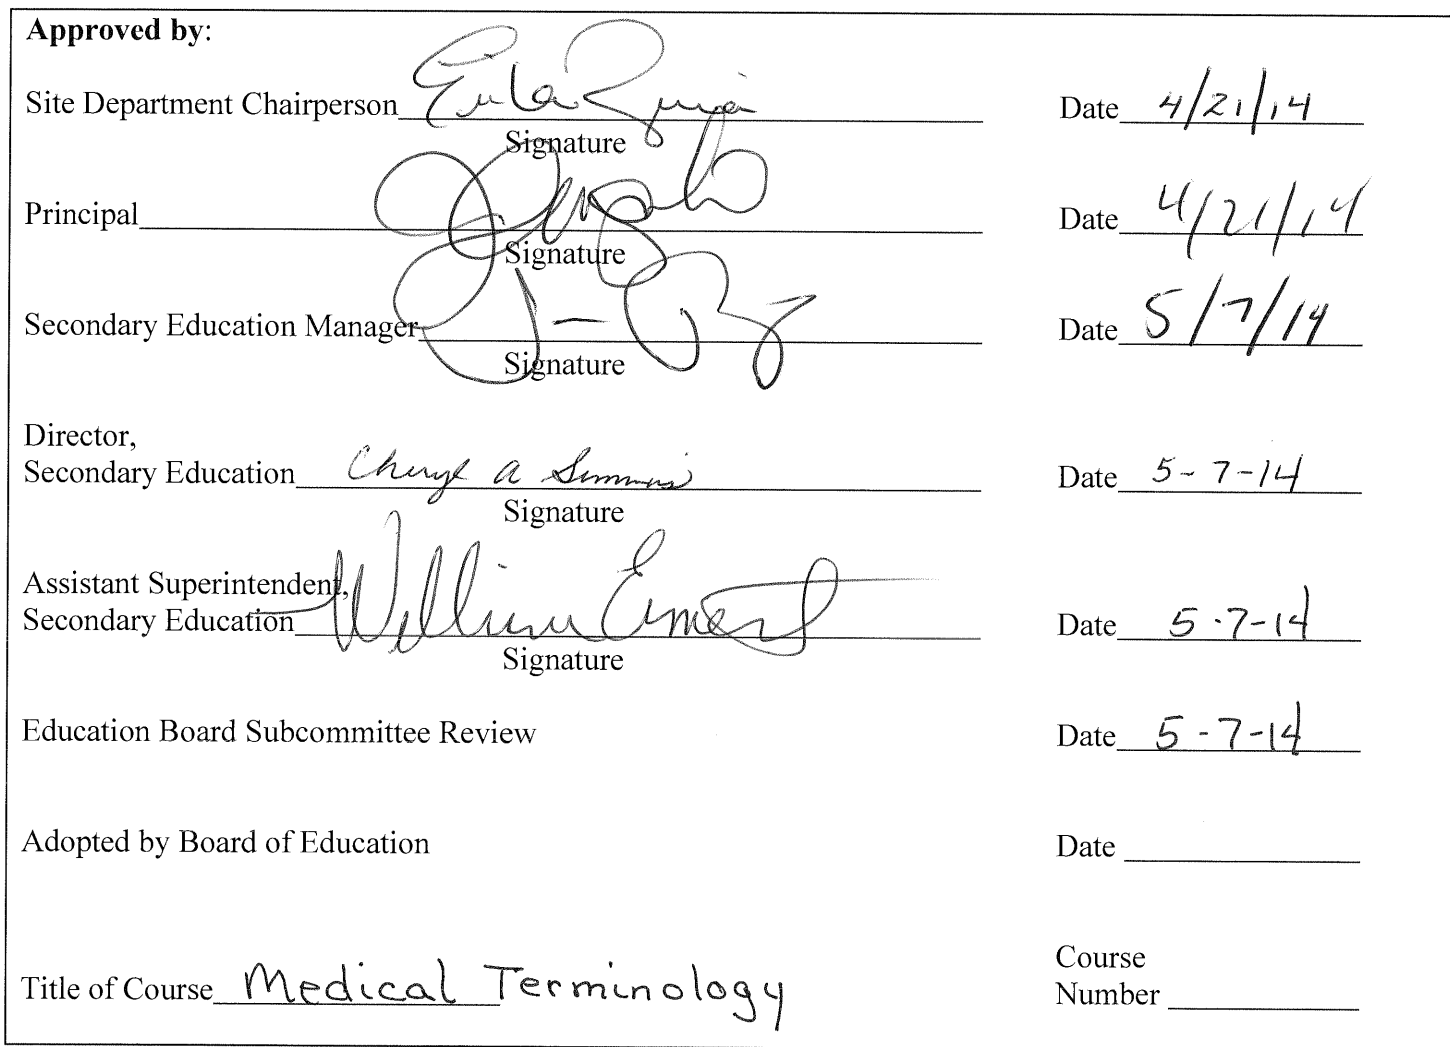 Approved by:
Site Department Chairperson Date 4/21/14
Signature
Principal Date 4/21/14
Signature
Secondary Education Manager Date 5/7/14
Signature
Director,
Secondary Education Cheryl A Simmons Date 5-7-14
Signature
Assistant Superintendent,
Secondary Education William Date 5-7-14
Signature
Education Board Subcommittee Review Date 5-7-14
Adopted by Board of Education Date
Course
Title of Course Medical Terminology Number